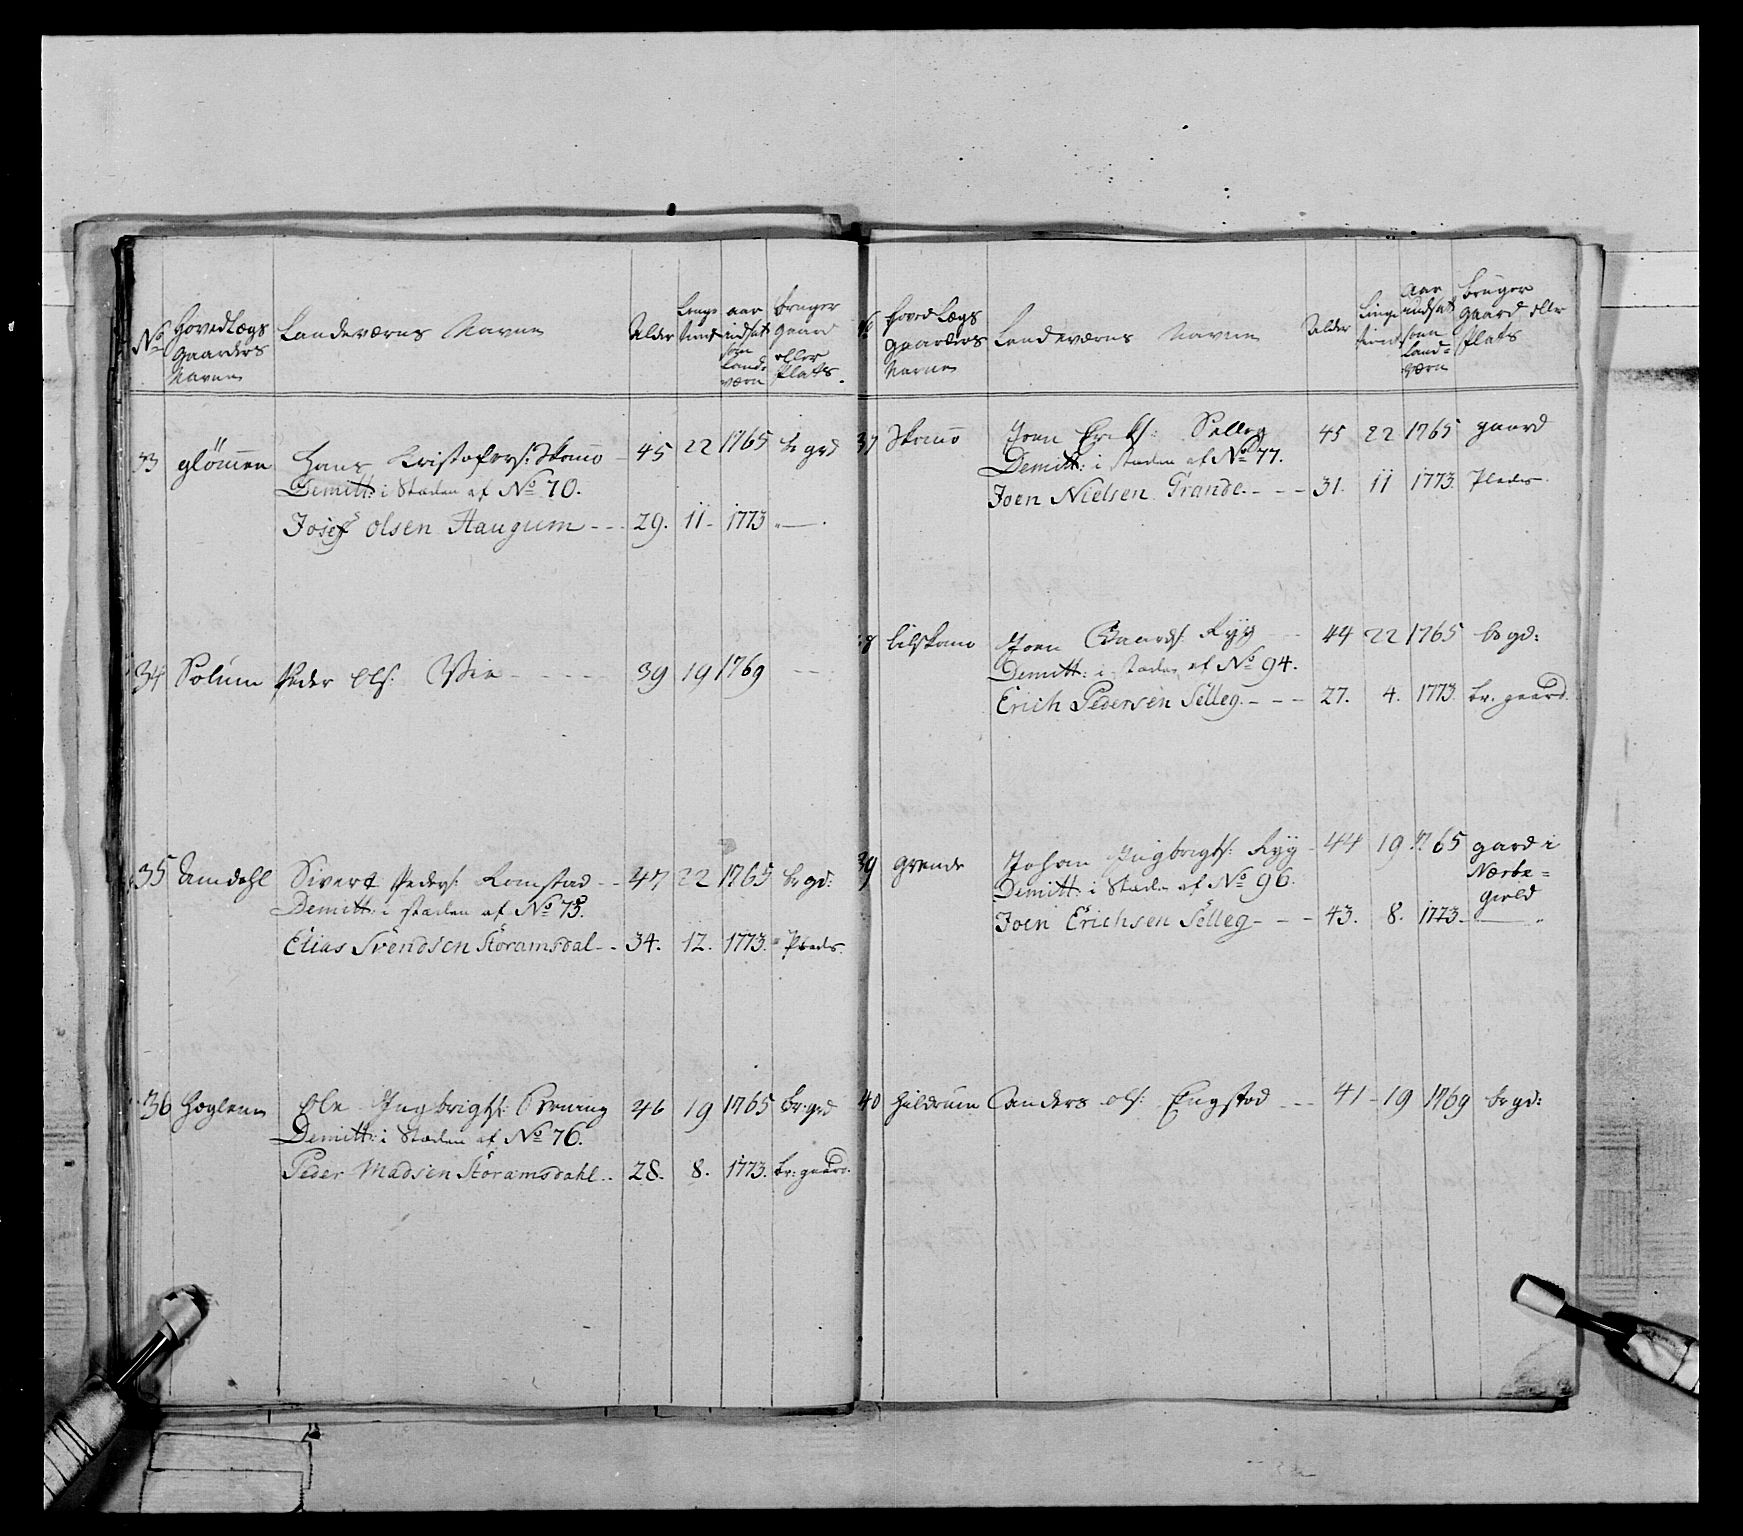 No
HovedLægs
Gaarders
Navne
Landeværns Navne
Alder
Længe
tient
aar
indsat
som
Land-
værn
bruger
gaard
eller
Plads.
33 glömen Hans Kristofers: Skomo 45 22 1765 br grd
Demitt: i Stæden af No 70.
Josef Olsen Haugum - - - 29. 11 - 1773 " — .
34 Solum Peder Ols: Vie - - - - 39 19 1769 —
35 Amdahl Sivert Peders: Romstad - - 47 22 1765 br gd:
Demitt: i stæden af No 75.
Elias Svendsen Storamsdal - - 34. 12. 1773. Plads.
36 Hoglem Ole Ingbrigts: 46 19 1765 br: grd
Demitt: i Stæden af No 76.
Peder Madsen Storamsdahl. . 28. 8. 1773. br: gaard.
Hoved Lægs
Gaarders
Navne
Landeværns Navne
Alder
Længe
tient
Aar
indsat
som
Land=
værn
Bruger
gaard eller
Plats
37 Skomo Joen Eriks: Selleg 45 22 1765 gaard
Demitt: i stæden af No 77.
Joen Nielsen Grande. - - - 31. 11 1773. Plads.
8 Lilskomo Joen Baards: Ryg - - 44 22 1765 br gd:
Demitt: i stæden af No 94.
Erich Pedersen Selleg. - - - 27. 4. 1773. br. gaard.
39 Grande Johan Ingbrigts: Ryg - 44 19 1765 gaard i
Demitt: i Stæden af No 96. Nærbe=
Joen Erichsen Selleg - - - 43. 8. 1773. gield
40 Hildrum Anders ols: Engstad - - - 41 - 19 1769 br gd: